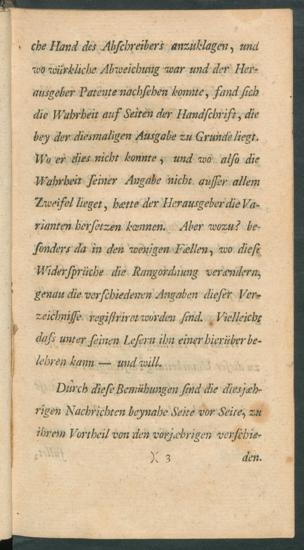 che Hand des Abſchreibers anzuklagen, und
wo würkliche Abweichung war und der Her-
ausgeber Patente nachſehen konnte, fand ſich
die Wahrheit auf Seiten der Handſchrift, die
bey der diesmaligen Ausgabe zu Grunde liegt.
Wo er dies nicht konnte, und wo alſo die
Wahrheit ſeiner Angabe nicht auſſer allem
Zweifel lieget, hætte der Herausgeber die Va-
rianten herſetzen kœnnen. Aber wozu? be-
ſonders da in den wenigen Fællen, wo dieſe
Widerſprüche die Rangordnung verændern,
genau die verſchiedenen Angaben dieſer Ver-
zeichniſſe regiſtriret worden ſind. Vielleicht
daſs unter ſeinen Leſern ihn einer hierüber be-
lehren kann — und will.
Durch dieſe Bemühungen ſind die diesjæh-
rigen Nachrichten beynahe Seite vor Seite, zu
ihrem Vortheil von den vorjæhrigen verſchie-
)( 3 den.